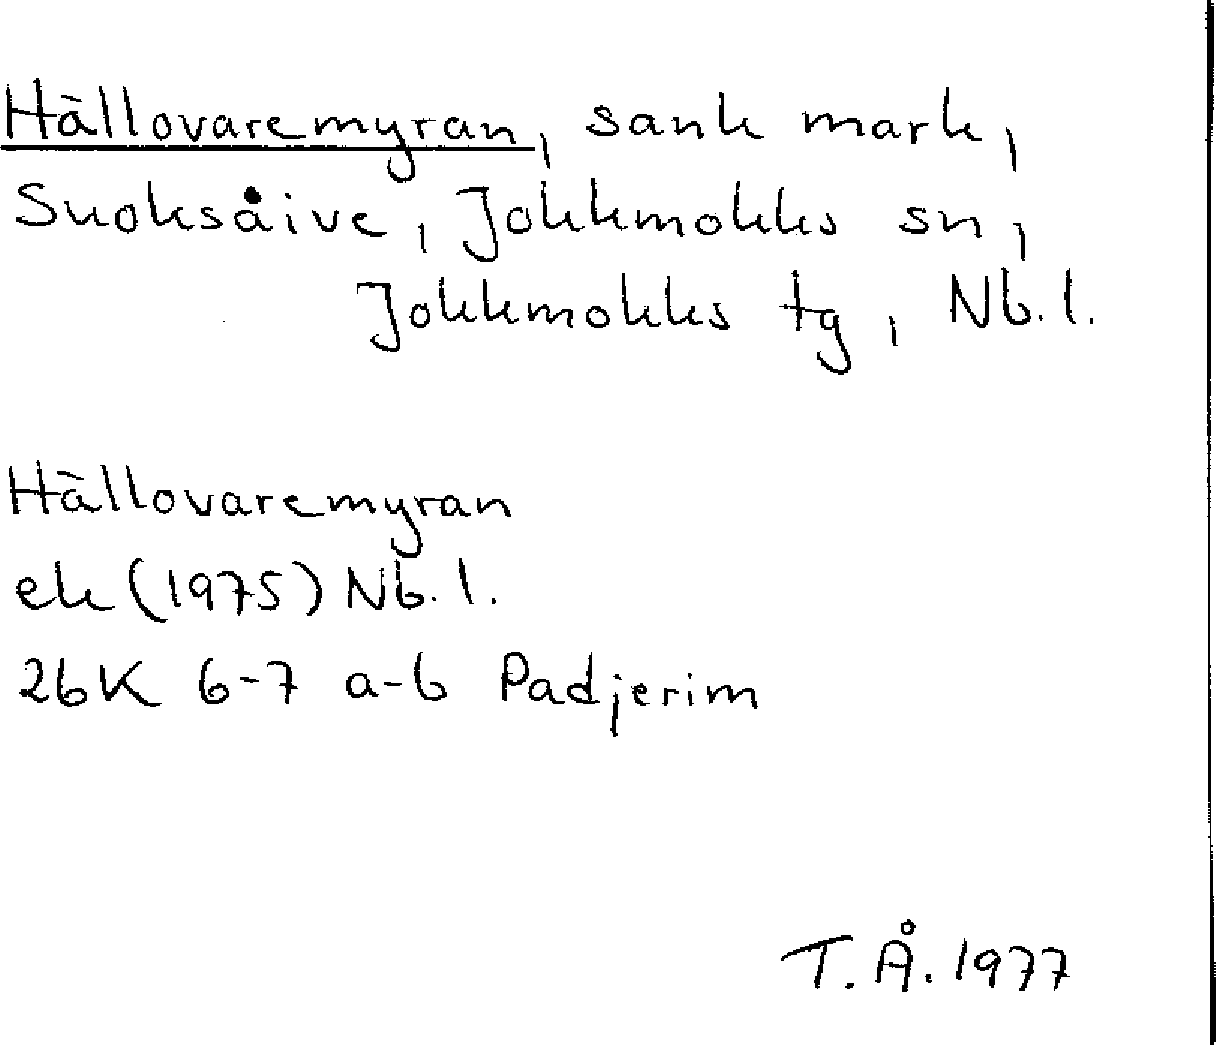 Hällovaremyran, sank mark,
Suoksåive, Jokkmokks sn,
Jokkmokks tg, Nb. l.
Hällovaremyran
ek (1975) Nb. l.
26K 6-7 a-b Padjerim
T. Å. 1977